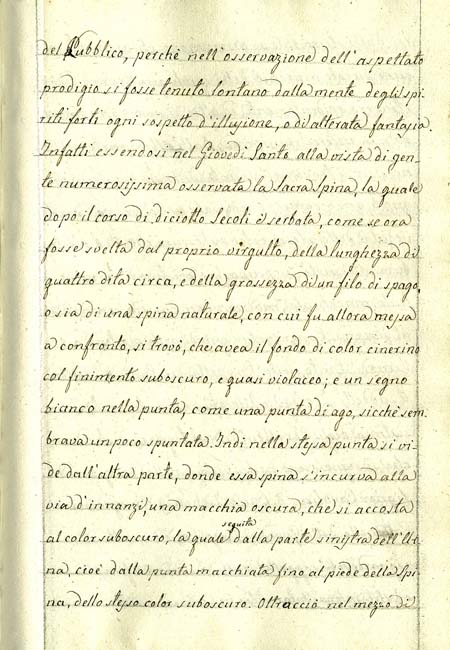 del Pubblico, perchè nell'osservazione dell'aspettato
prodigio si fosse tenuto lontano dalla mente degli spi-
riti forti ogni sospetto d'illusione, o di alterata fantasia.
Infatti essendosi nel Giovedì Santo alla vista di gen-
te numerosissima osservata la Sacra Spina, la quale
dopo il corso di diciotto Secoli è serbata, come se ora
fosse svelta dal proprio virgulto, della lunghezza di
quattro dita circa, e della grossezza di un filo di spago,
o sia di una spina naturale, con cui fu allora messa
a confronto, si trovò, che avea il fondo di color cinerino
col finimento suboscuro, e quasi violaceo; e un segno
bianco nella punta, come una punta di ago, sicchè sem-
brava un poco spuntata. Indi nella stessa punta si vi-
de dall'altra parte, donde essa spina s'incurva alla
via d'innanzi, una macchia oscura, che si accosta
al color suboscuro, la quale seguita dalla parte sinistra
na, cioè dalla punta macchiata fino al piede della Spi-
na, dello stesso color suboscuro. Oltracciò nel mezzo di